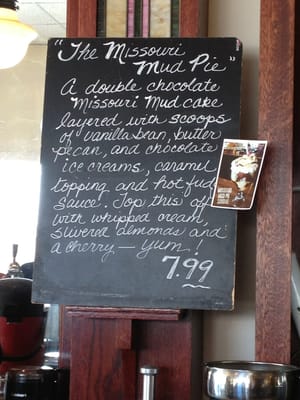 "The Missouri
Mud Pie"
A double chocolate
Missouri Mud cake
layered with scoops
of vanilla bean, butter
pecan, and chocolate
ice creams, caramel
topping and hot fud
sauce. Top this off
with whipped cream,
slivered almonds and
a cherry — yum!
7.99